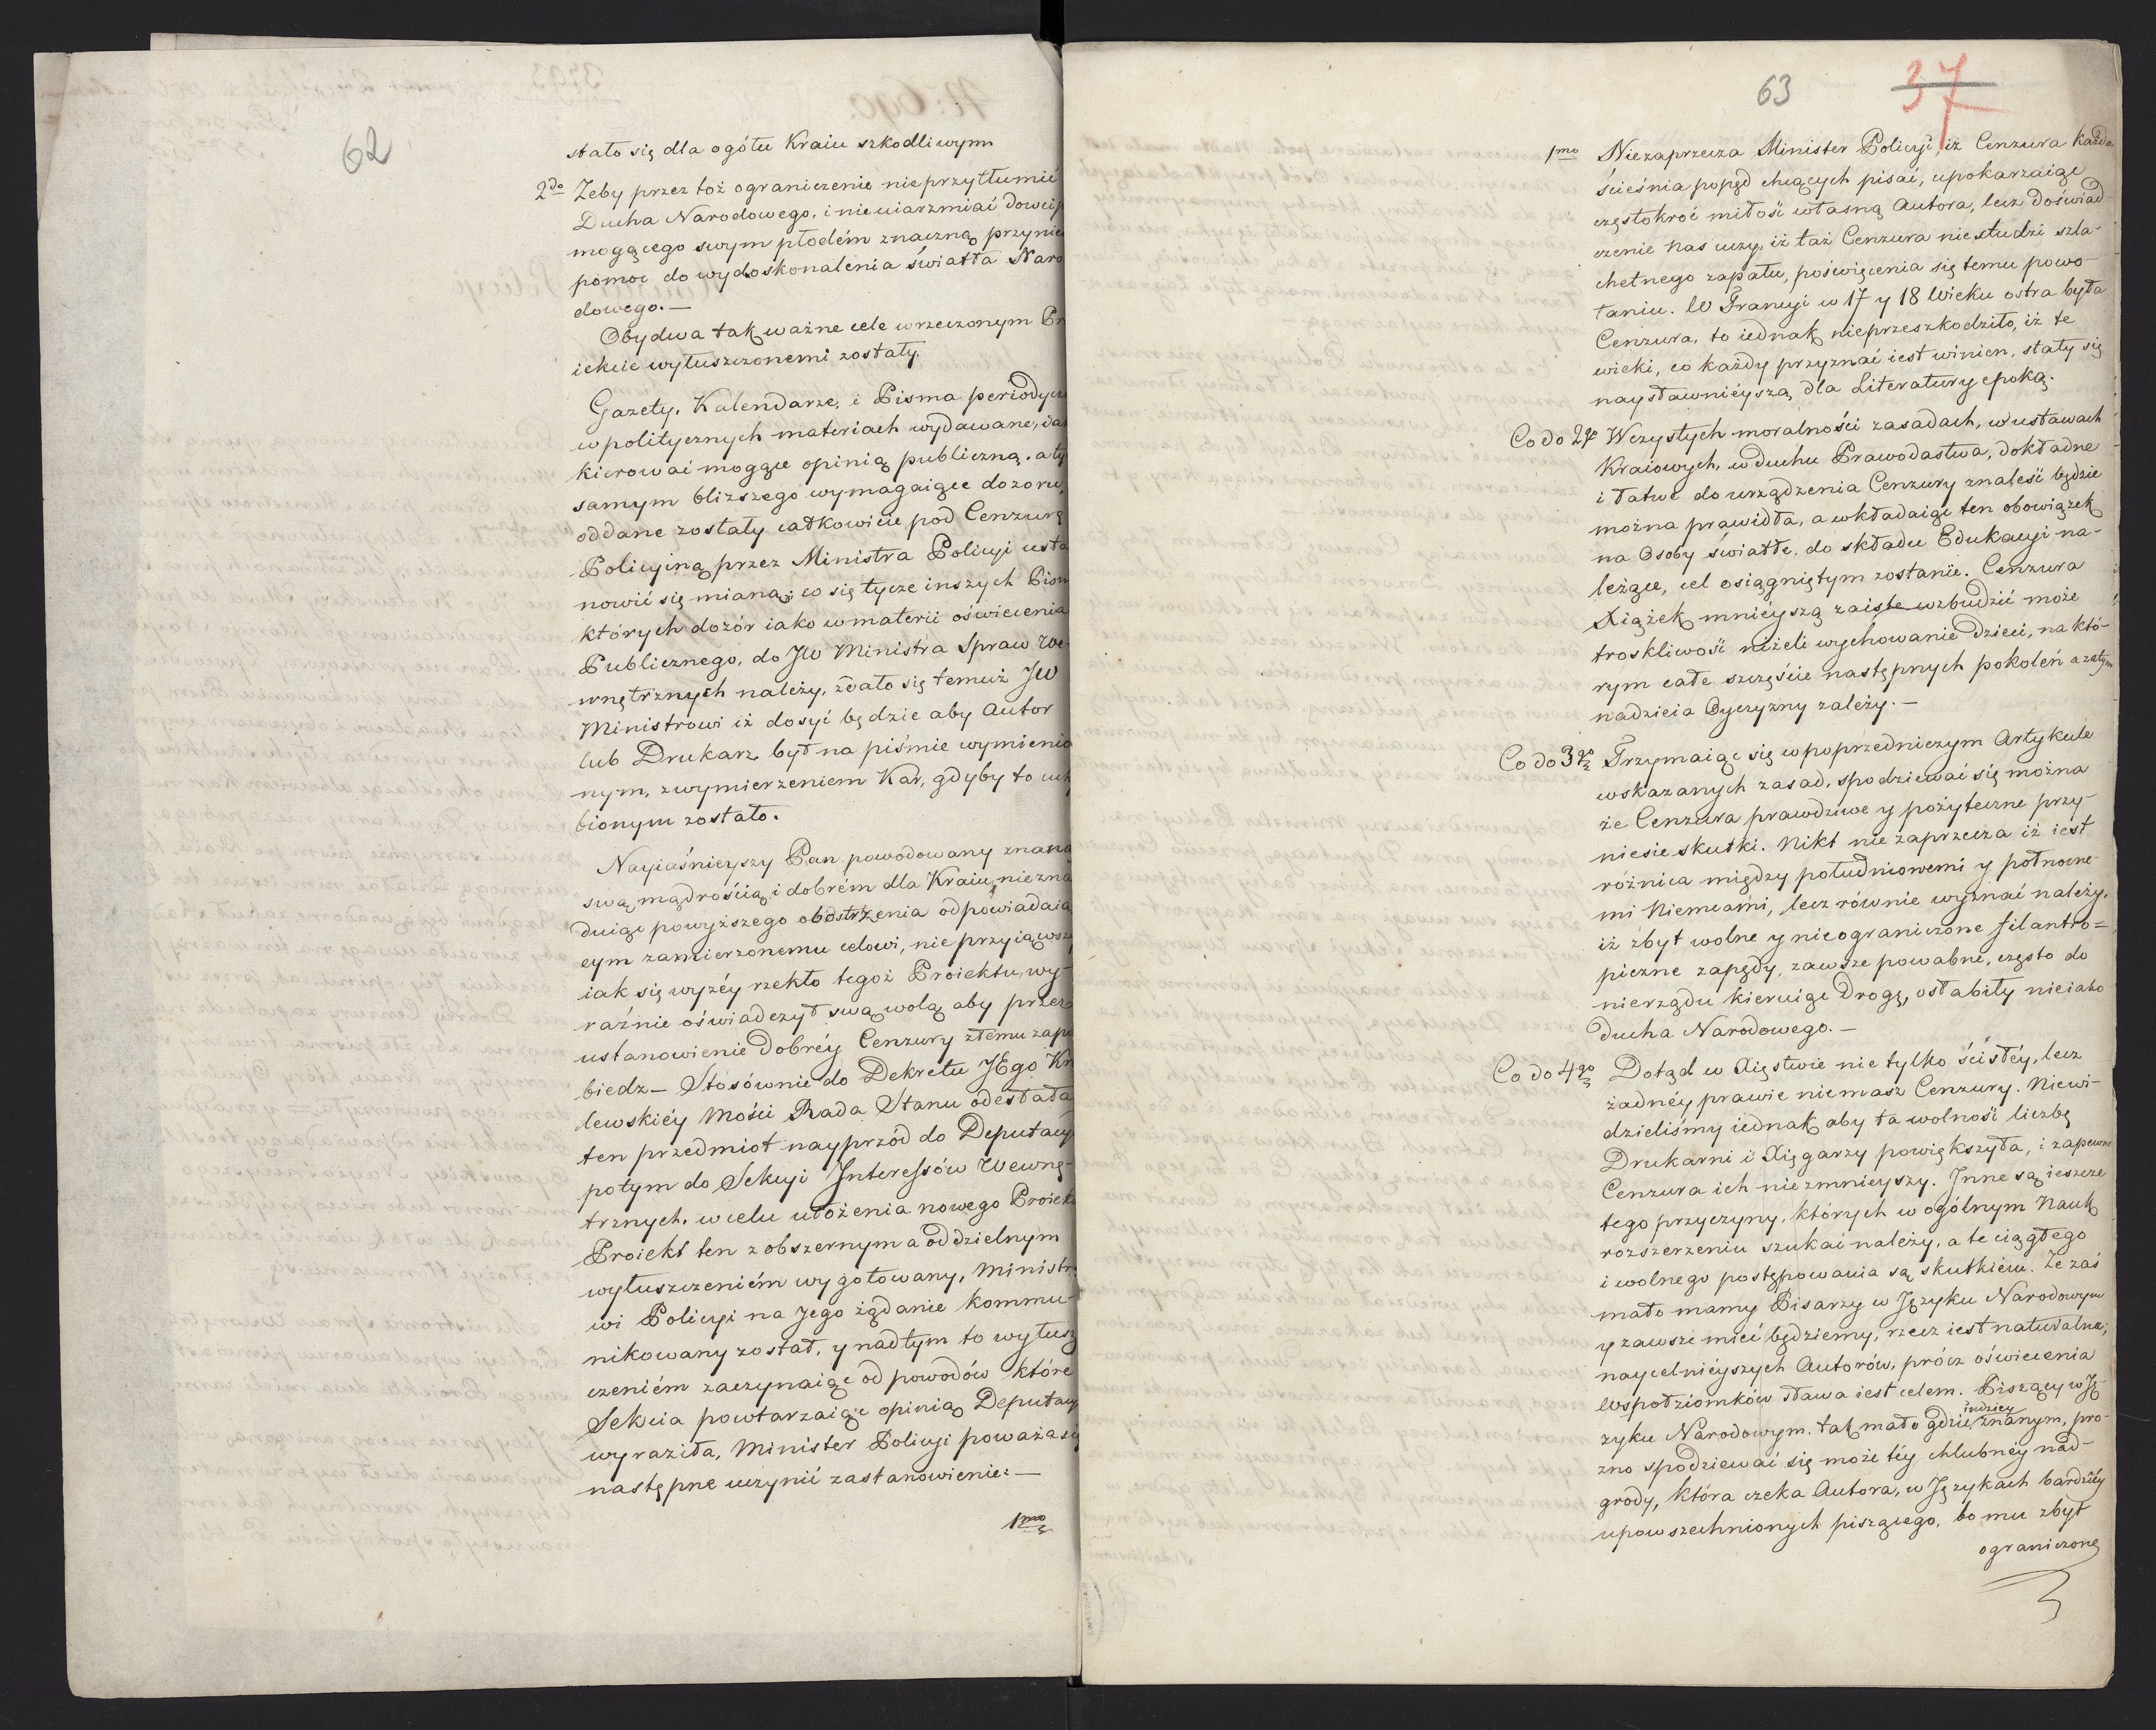 62
stało się dla ogółu Kraiu szkodliwym
2do Żeby przez toż ograniczenie nieprzytłumić
Ducha Narodowego, i nieuiarzmiać dowcip
mogącego swym płodém znaczną przynie
pomoc do wydoskonalenia światła Naro
dowego. —
Obydwa tak ważne cele wrzeczonym Pr
iekcie wyłuszczonemi zostały.
Gazety, Kalendarze, i Pisma periodycz
w politycznych materiach wydawane,
kierować mogące opinią publiczną, a ty
samym bliższego wymagaiące dozoru,
oddane zostały całkowicie pod Cenzurę
Policyiną przez Ministra Policyi usta
nowić się mianą; co się tycze inszych Pism
których dozór iako w materii oświecenia
Publicznego, do JW Ministra Spraw We-
wnętrznych należy, zdało się temuż JW
Ministrowi iż dosyć będzie aby Autor
lub Drukarz był na piśmie wymienio
nym, z wymierzeniem Kar, gdyby to uch
bionym zostało.
Nayiaśnieyszy Pan powodowany znaną
swą mądrością i dobrém dla Kraiu, niezna
duiąc powyższego obostrzenia odpowiadaią
cym zamierzonemu celowi, nie przyiąwszy
iak się wyżéy rzekło tegoż Proiektu, wy-
raźnie oświadczył swą wolą aby przez
ustanowienie dobréy Cenzury złemu zapo
biedz — Stosównie do Dekretu JEgo Kr
lewskiéy Mości Rada Stanu odesłała
ten przedmiot nayprzód do Deputacyi
potym do Sekcyi Interessów Wewnę-
trznych, w celu ułożenia nowego Proiektu
Proiekt ten z obszernym a oddzielnym
wyłuszczeniém wygotowany, Ministro
wi Policyi na Jego żądanie kommu-
nikowany został, y nad tym to wyłusz
czeniém zaczynaiąc od powodów które
Sekcia powtarzaiąc opinią Deputacyi
wyraziła, Minister Policyi poważa się
następne uczynić zastanowienie: —
1mo
63
37
1mo Niezaprzecza Minister Policyi, iż Cenzura każda
ścieśnia popęd chcących pisać, upokarzaiąc
częstokroć miłość własną Autora, lecz doświad
czenie nas uczy, iż taż Cenzura niestudzi szla-
chetnego zapału, poświęcenia się temu powo-
łaniu. W Francyi w 17 y 18 Wieku ostra była
Cenzura, to iednak nieprzeszkodziło, iż te
wieki, co każdy przyznać iest winien, stały się
naysławnieyszą dla Literatury epoką.
Co do 2go W czystych moralności zasadach, w ustawach
Kraiowych, w duchu Prawodastwa, dokładne
i łatwe do urządzenia Cenzury znaleść będzie
można prawidła, a wkładaiąc ten obowiązek
na Osoby światłe, do składu Edukacyi na-
leżące, cel osiągniętym zostanie. Cenzura
Xiążek mnieyszą zaiste wzbudzić może
troskliwość niżeli wychowanie dzieci, na któ-
rym całe szczęście następnych pokoleń a zatym
nadzieia Oyczyzny zależy. —
Co do 3go Trzymaiąc się w poprzedniczym Artykule
wskazanych zasad, spodziewać się można
że Cenzura prawdziwe y pożyteczne przy-
niesie skutki. Nikt nie zaprzecza iż iest
różnica między południowemi y północne-
mi Niemcami, lecz równie wyznać należy,
iż zbyt wolne y nieograniczone filantro=
piczne zapędy, zawsze powabne, często do
nierządu kieruiąc drogę, osłabiły nieiako
ducha Narodowego. —
Co do 4go Dotąd w Xięstwie nie tylko ścisłéy, lecz
żadnéy prawie niemasz Cenzury. Niewi-
dzieliśmy iednak aby ta wolność liczbę
Drukarni i Xięgarzy powiększyła, i zapewne
Cenzura ich niezmnieyszy. Inne są ieszcze
tego przyczyny, których w ogólnym Nauk
rozszerzeniu szukać należy, a te ciągłego
i wolnego postępowania są skutkiem. Że zaś
mało mamy Pisarzy w Języku Narodowym
y zawsze mieć będziemy, rzecz iest naturalna;
naycelnieyszych Autorów, prócz oświecenia
Współziomków sława iest celem. Piszący w Ję-
zyku Narodowym, tak mało gdzie indziey znanym, pró-
żno spodziewać się może téy chlubnéy nad-
grody, która czeka Autora, w Językach bardziéy
upowszechnionych piszącego, bo mu zbyt
ograniczone